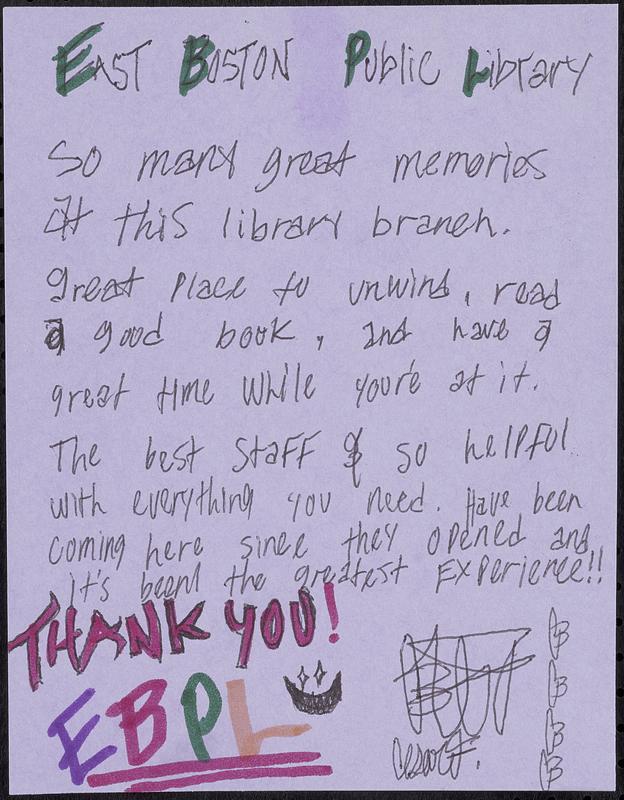 EAST BOSTON Public Library
So many great memories
At this library branch.
great place to unwind, read
a good book, and have a
great time while you're at it.
The best staff & so helpful
with everything you need. Have been
coming here since they opened and
It's been the greatest Experience!!
THANK YOU!
EBPL